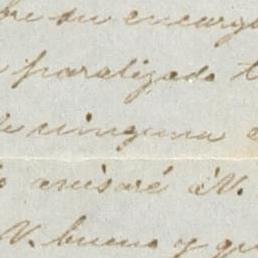 su encarg
paralizado t
de ninguna
avisaré á V.
V. bueno y qu